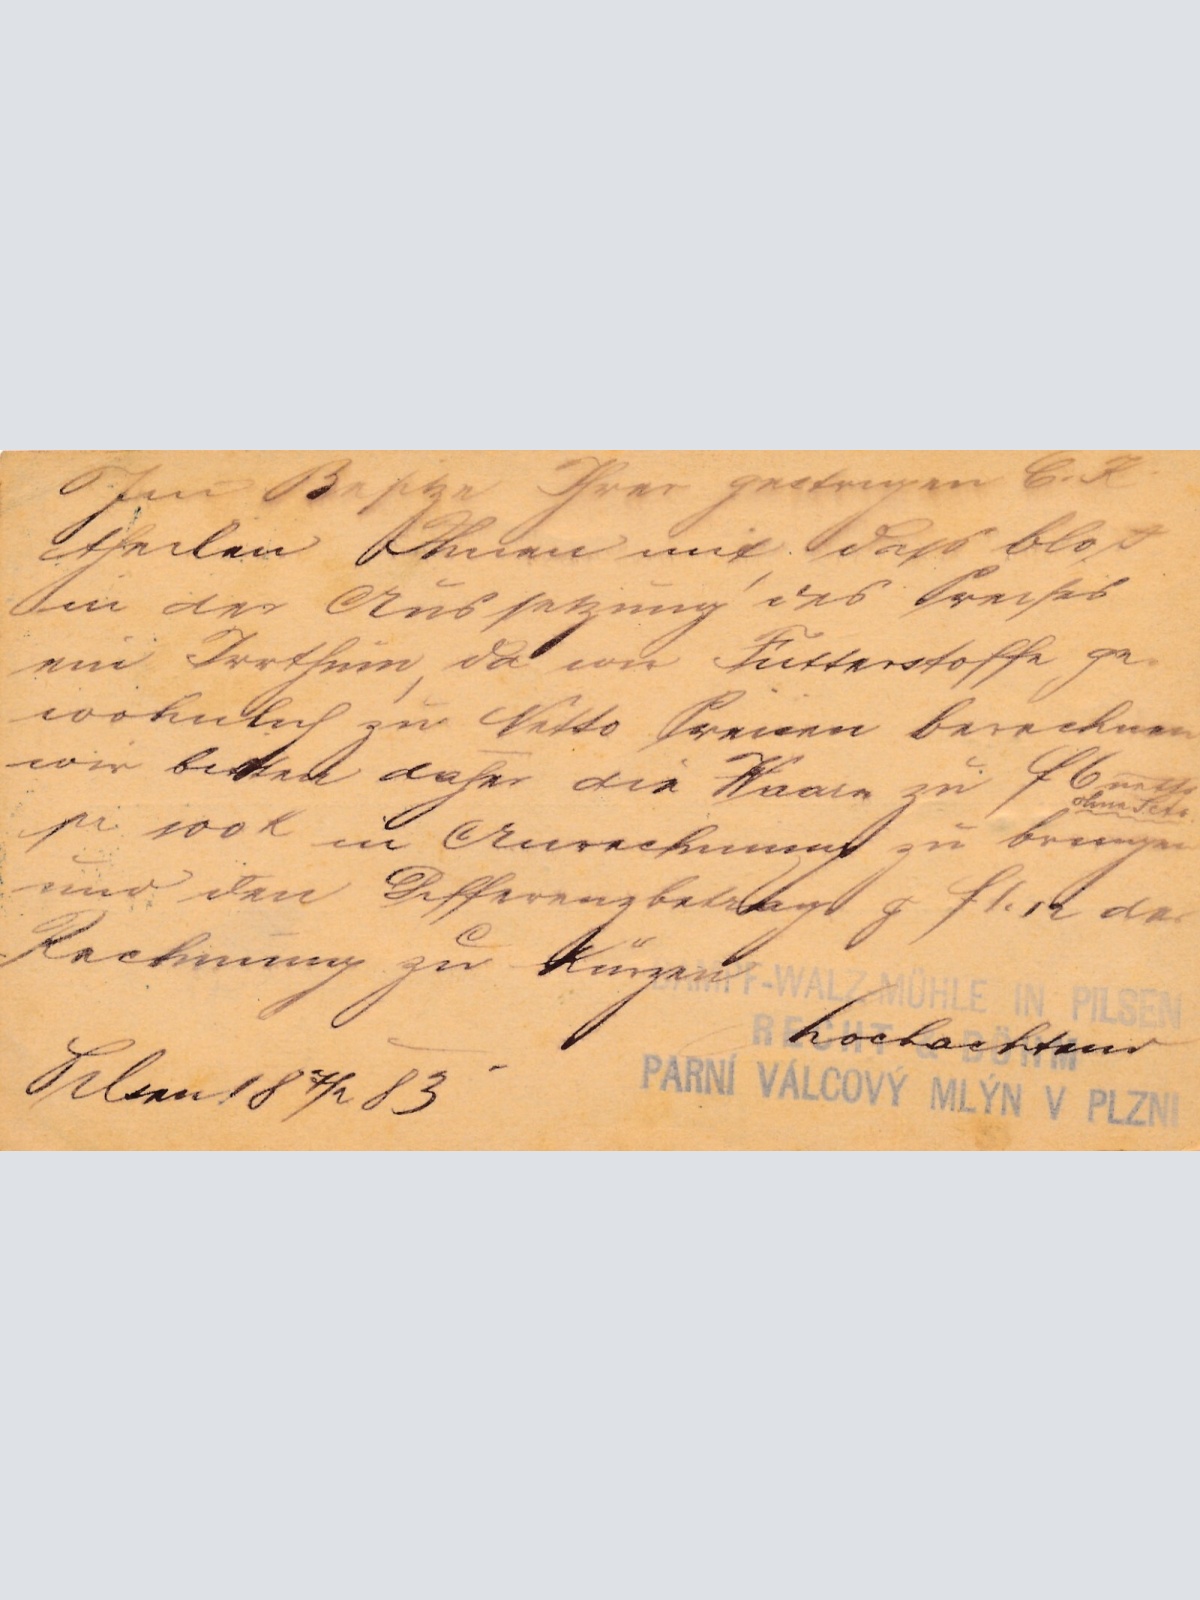 Im Besitze Ihrer gestrigen C. K
theilen Ihnen mit, dass blos
in der Aussetzung des Preises
ein Irrthum, da wir Futterstoffe ge-
wöhnlich zu Netto Preisen berechnen
wir bitten daher die Waare zu f 6 netto
ohne Sctо
pr 100 K in Anrechnung zu bringen
und den Differenzbetrag f 1.12 der
Rechnung zu kürzen
DAMPF-WALZ-MÜHLE IN PILSEN
hochachtend
RECHT & BÖHM
PARNÍ VÁLCOVÝ MLÝN V PLZNI
Pilsen 18 4/2 83